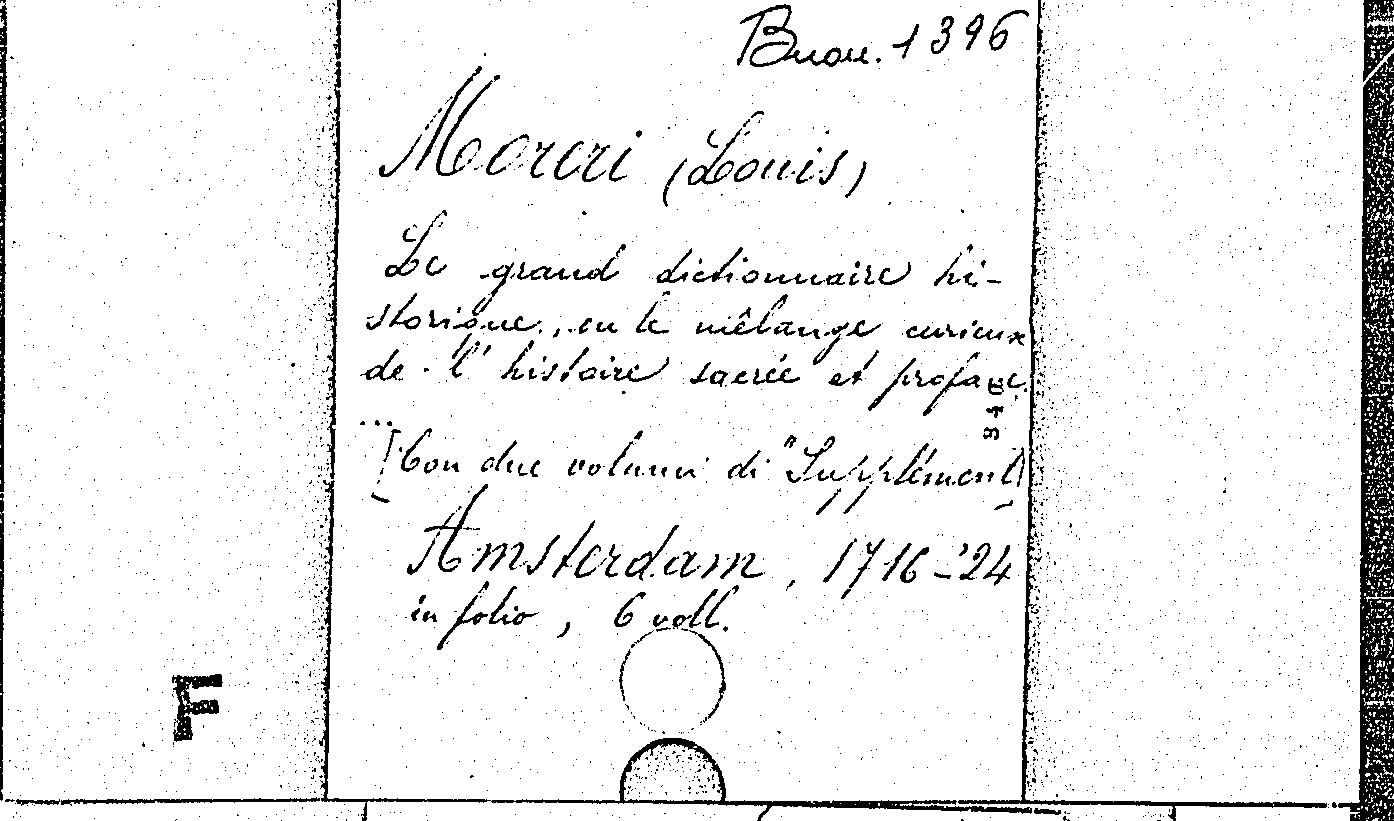 Buon. 1396
Moreri (Louis)
Le grand dictionnaire hi-
storique, ou le mêlange curieux
de l'histoire sacrée et profane
...
[Con due volumi di "Supplément]
Amsterdam, 1716-'24
in folio, 6 voll.
F